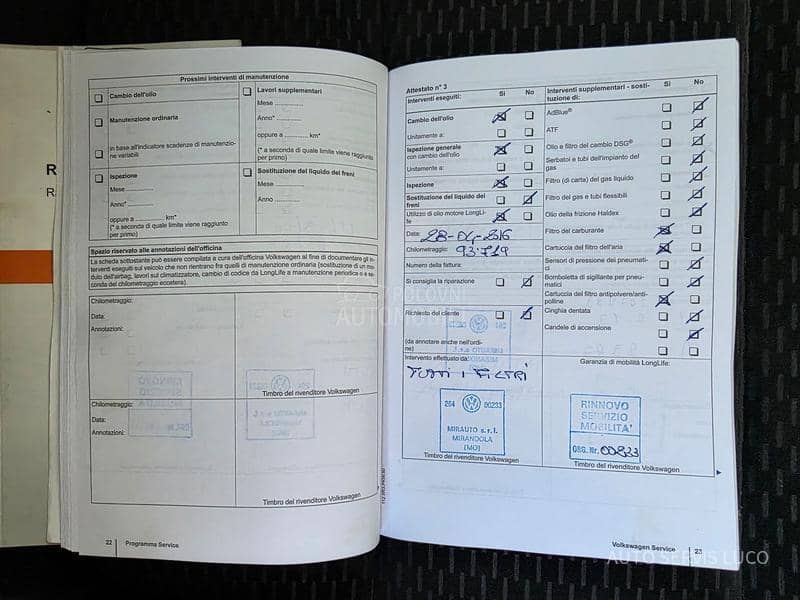 Prossimi interventi di manutenzione
Cambio dell'olio
Manutenzione ordinaria
in base all'indicatore scadenze di manutenzio-
ne variabili
Ispezione
Mese ..............
Anno* ..............
oppure a .............. km*
(* a seconda di quale limite viene raggiunto
per primo)
Lavori supplementari
Mese ..............
Anno* ..............
oppure a .............. km*
(* a seconda di quale limite viene raggiunto
per primo)
Sostituzione del liquido dei freni
Mese ..............
Anno ..............
Spazio riservato alle annotazioni dell'officina
La scheda sottostante può essere compilata a cura dell'officina Volkswagen al fine di documentare gli in-
terventi eseguiti sul veicolo che non rientrano fra quelli di manutenzione ordinaria (sostituzione di un mo-
dulo dell'airbag, lavori sul climatizzatore, cambio di codice da LongLife a manutenzione periodica o a se-
conda del chilometraggio eccetera).
Chilometraggio:
Data:
Annotazioni:
Timbro del rivenditore Volkswagen
Chilometraggio:
Data:
Annotazioni:
Timbro del rivenditore Volkswagen
22
Programma Service
Attestato n° 3
Interventi eseguiti:
Sì
No
Cambio dell'olio
Unitamente a:
Ispezione generale
con cambio dell'olio
Unitamente a:
Ispezione
Sostituzione del liquido dei
freni
Utilizzo di olio motore LongLi-
fe
Data:
Chilometraggio: 93719
Numero della fattura:
Si consiglia la riparazione
Richiesta del cliente
(da annotare anche nell'ordi-
ne)
Intervento effettuato da:
TUTTI I FILTRI
264 00233
MIRAUTO s.r.l.
MIRANDOLA
(MO)
Timbro del rivenditore Volkswagen
Interventi supplementari - sosti-
tuzione di:
Sì
No
AdBlue®
ATF
Olio e filtro del cambio DSG®
Serbatoi e tubi dell'impianto del
gas
Filtro (di carta) del gas liquido
Filtro del gas e tubi flessibili
Olio della frizione Haldex
Filtro del carburante
Cartuccia del filtro dell'aria
Sensori di pressione dei pneumati-
ci
Bomboletta di sigillante per pneu-
matici
Cartuccia del filtro antipolvere/anti-
polline
Cinghia dentata
Candele di accensione
Garanzia di mobilità LongLife:
RINNOVO
SERVIZIO
MOBILITA'
ORG. Nr.
Timbro del rivenditore Volkswagen
Volkswagen Service
23
POLOVNI
AUTOMOBILI
AUTO SERVIS LUCO